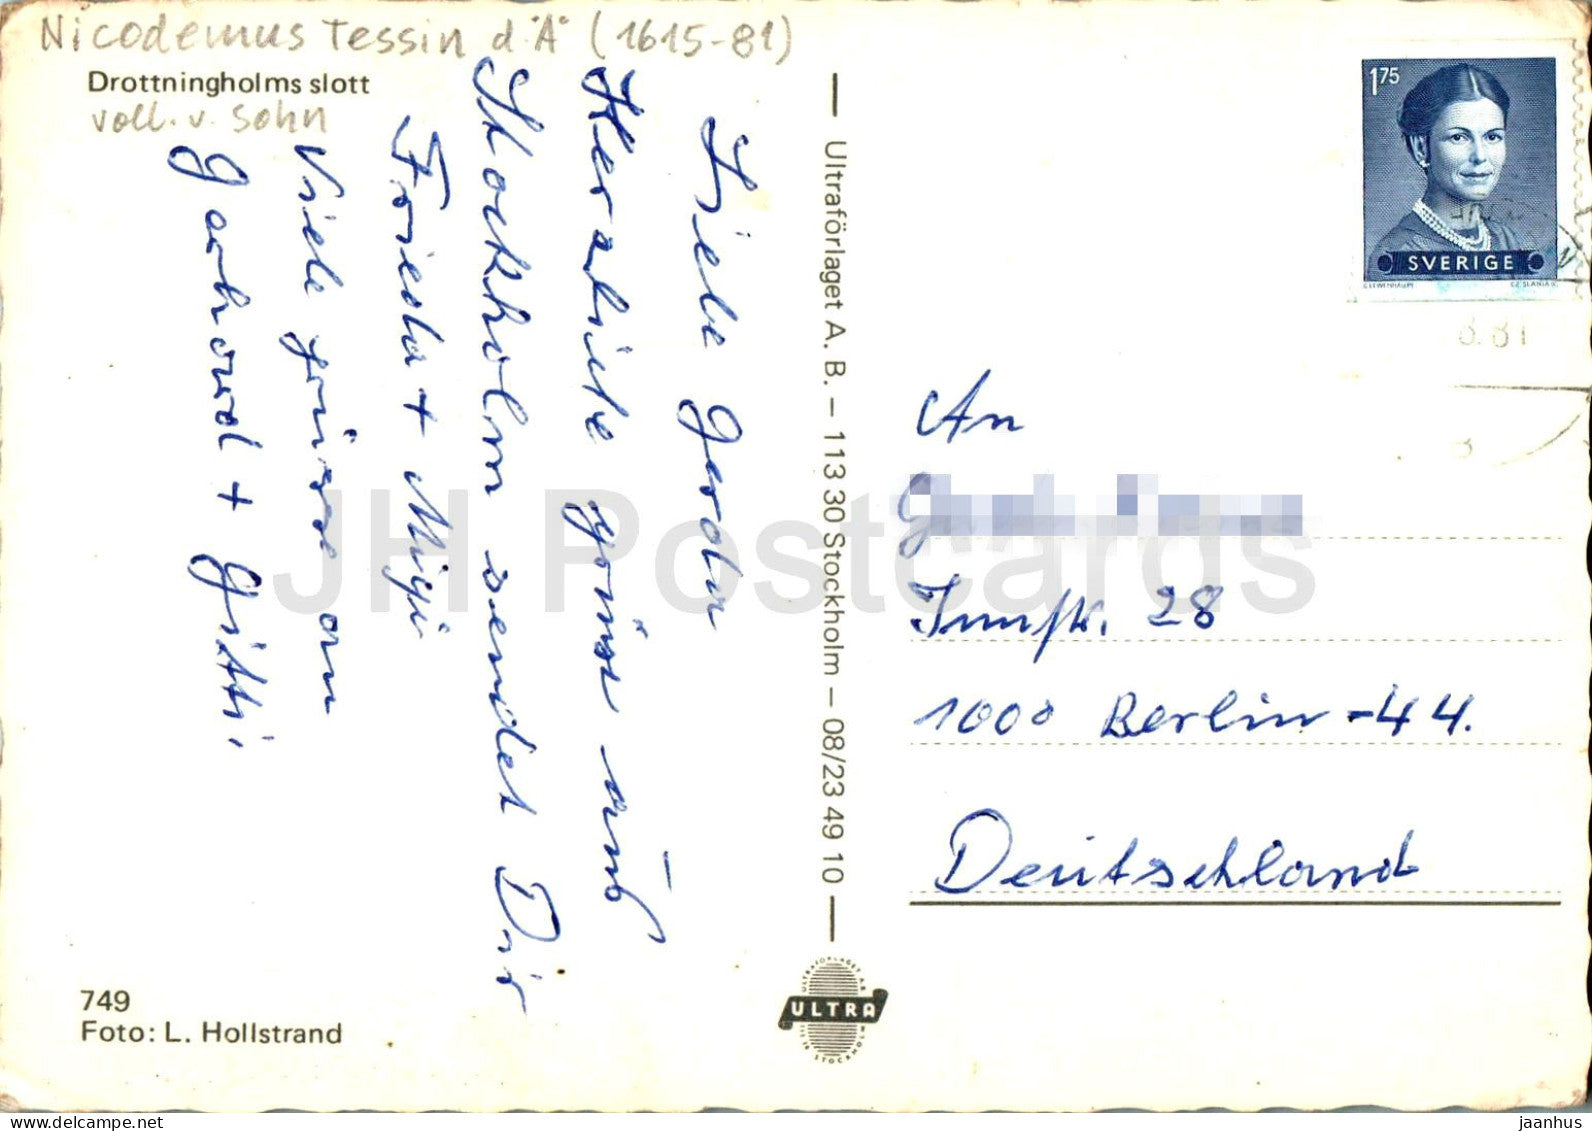 Nicodemus Tessin d.Ä. (1615-81)
Drottningholms slott
voll. v. Sohn
Liebe Gerda
Herzliche Grüsse aus
Stockholm sendet Dir
Frieda + Migi
Viele Grüsse von
Gerhard + Gitti.
749
Foto: L. Hollstrand
Ultraförlaget A. B. – 113 30 Stockholm – 08/23 49 10
ULTRA
1.75
SVERIGE
8.81
An
Innstr. 28
1000 Berlin-44.
Deutschland
JH Postcards
jaanhus